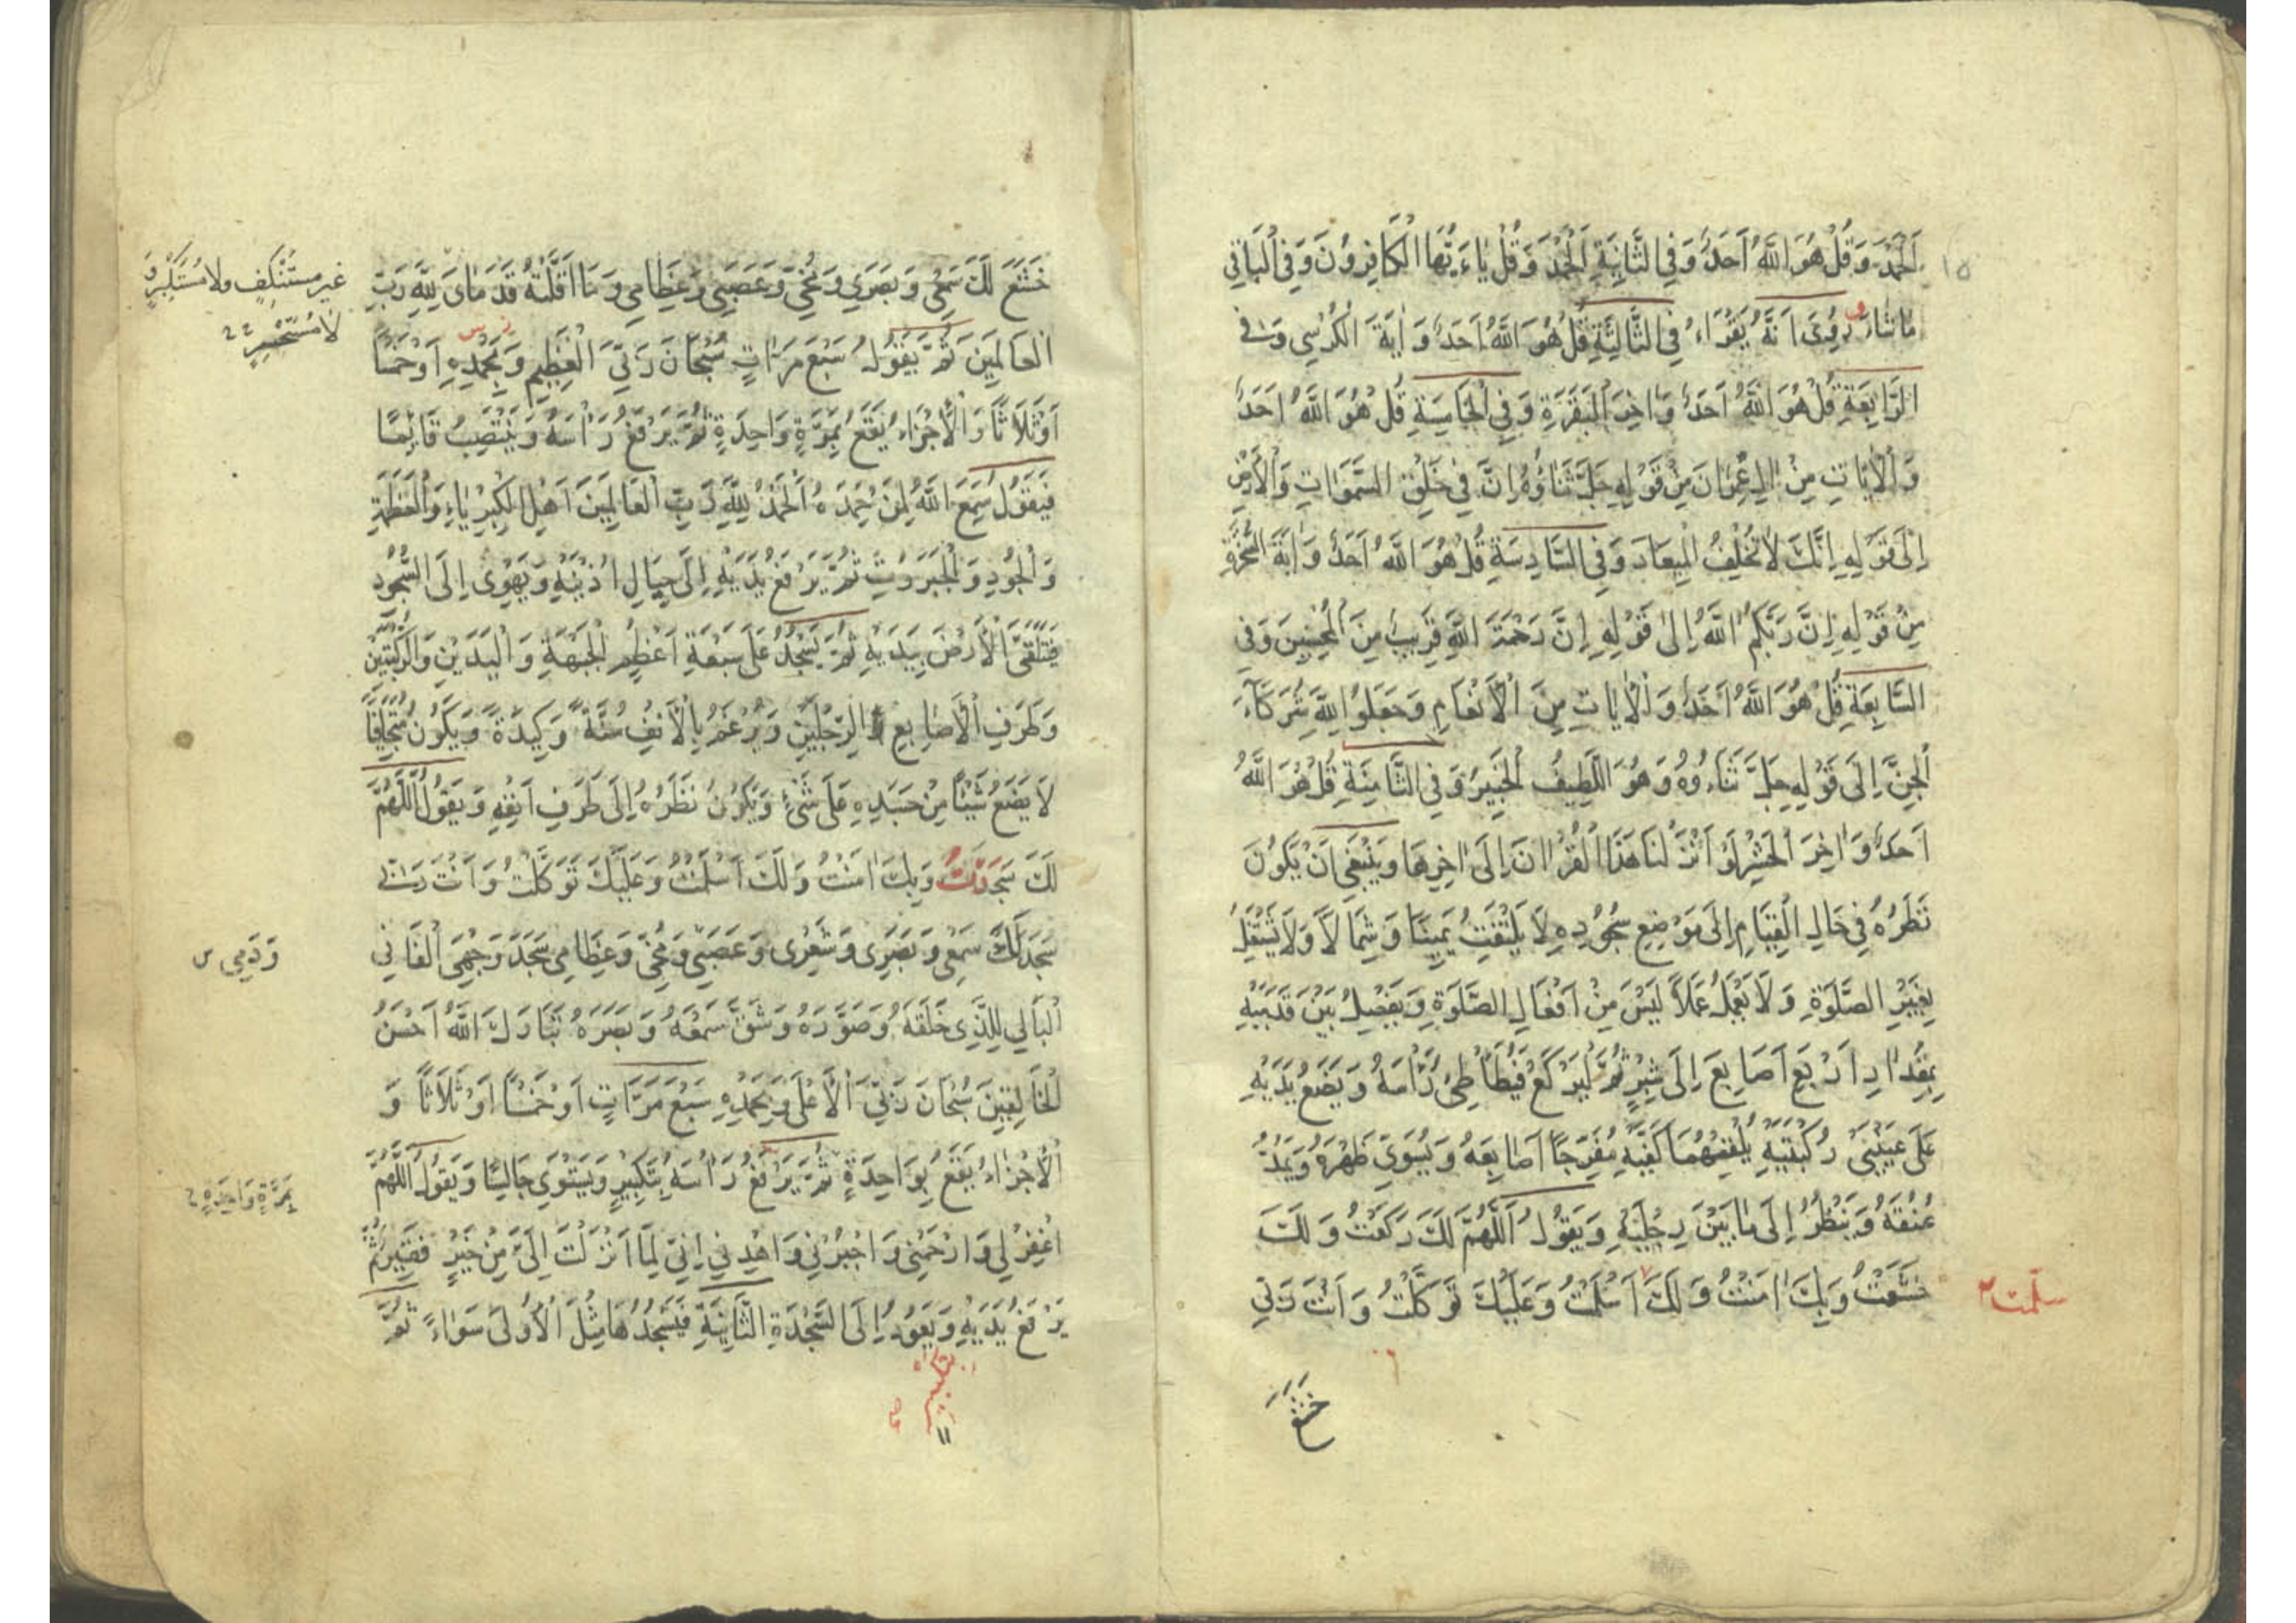 اَلْحَمْدَ وَقُلْ هُوَ اللّٰهُ اَحَدٌ وَفِي الثَّانِيَةِ اَلْحَمْدَ وَقُلْ يَاءَيُّهَا الْكَافِرُونَ وَفِي الْبَاقِي
مَا شَاءَ وَرُوِيَ اَنَّهُ يَقْرَاءُ فِي الثَّالِثَةِ قُلْ هُوَ اللّٰهُ اَحَدٌ وَاٰيَةَ الْكُرْسِي وَفِي
الرَّابِعَةِ قُلْ هُوَ اللّٰهُ اَحَدٌ وَاٰخِرَ الْبَقَرَةِ وَفِي الْخَامِسَةِ قُلْ هُوَ اللّٰهُ اَحَدٌ
وَالْاٰيَاتِ مِنْ اٰلِ عِمْرَانَ مِنْ قَوْلِهِ جَلَّ ثَنَاؤُهُ اِنَّ فِي خَلْقِ السَّمَوَاتِ وَالْاَرْضِ
اِلَى قَوْلِهِ اِنَّكَ لَا تُخْلِفُ الْمِيعَادَ وَفِي السَّادِسَةِ قُلْ هُوَ اللّٰهُ اَحَدٌ وَاٰيَةَ السُّخْرَةِ
مِنْ قَوْلِهِ اِنَّ رَبَّكُمُ اللّٰهُ اِلَى قَوْلِهِ اِنَّ رَحْمَةَ اللّٰهِ قَرِيبٌ مِنَ الْمُحْسِنِينَ وَفِي
السَّابِعَةِ قُلْ هُوَ اللّٰهُ اَحَدٌ وَالْاٰيَاتِ مِنَ الْاَنْعَامِ وَجَعَلُوا لِلّٰهِ شُرَكَاءَ
الْجِنَّ اِلَى قَوْلِهِ جَلَّ ثَنَاءُوهُ وَهُوَ اللَّطِيفُ الْخَبِيرُ وَفِي الثَّامِنَةِ قُلْ هُوَ اللّٰهُ
اَحَدٌ وَاٰخِرَ الْحَشْرِ لَوْ اَنْزَلْنَا هَذَا الْقُرْاٰنَ اِلَى اٰخِرِهَا وَيَنْبَغِي اَنْ يَكُونَ
نَظَرُهُ فِي حَالِ الْقِيَامِ اِلَى مَوْضِعِ سُجُودِهِ لَا يَلْتَفِتُ يَمِينًا وَشِمَالًا وَلَا يَشْتَغِلُ
بِغَيْرِ الصَّلَوةِ وَلَا يَعْمَلُ عَمَلًا لَيْسَ مِنْ اَفْعَالِ الصَّلَوةِ وَيَفْصِلُ بَيْنَ قَدَمَيْهِ
بِمِقْدَارِ اَرْبَعِ اَصَابِعَ اِلَى شِبْرٍ ثُمَّ لْيَرْكَعْ فَيُطَأْطِئُ رَأْسَهُ وَيَضَعُ يَدَيْهِ
عَلَى عَيْنَيْ رُكْبَتَيْهِ يُلْقِمُهُمَا كَفَّيْهِ مُفَرِّجًا اَصَابِعَهُ وَيُسَوِّي ظَهْرَهُ وَيَمُدُّ
عُنُقَهُ وَيَنْظُرُ اِلَى مَا بَيْنَ رِجْلَيْهِ وَيَقُولُ اَللّٰهُمَّ لَكَ رَكَعْتُ وَلَكَ
خَشَعْتُ وَبِكَ اٰمَنْتُ وَلَكَ اَسْلَمْتُ وَعَلَيْكَ تَوَكَّلْتُ وَاَنْتَ رَبِّي
خَشَعَ
خَشَعَ لَكَ سَمْعِي وَبَصَرِي وَمُخِّي وَعَصَبِي وَعِظَامِي وَمَا اَقَلَّتْهُ قَدَمَايَ لِلّٰهِ رَبِّ
غير مستنكف ولا مستكبر و
لا مستحسر
الْعَالَمِينَ ثُمَّ يَقُولُ سَبْعَ مَرَاتٍ سُبْحَانَ رَبِّيَ الْعَظِيمِ وَبِحَمْدِهِ اَوْ خَمْسًا
اَوْ ثَلَاثًا وَالْاِجْزَاءُ يَقَعُ بِمَرَّةٍ وَاحِدَةٍ ثُمَّ يَرْفَعُ رَاْسَهُ وَيَنْتَصِبُ قَائِمًا
فَيَقُولُ سَمِعَ اللّٰهُ لِمَنْ حَمِدَهُ اَلْحَمْدُ لِلّٰهِ رَبِّ الْعَالَمِينَ اَهْلِ الْكِبْرِيَاءِ وَالْعَظَمَةِ
وَالْجُودِ وَالْجَبَرُوتِ ثُمَّ يَرْفَعُ يَدَيْهِ اِلَى حِيَالِ اُذُنَيْهِ وَيَهْوِى اِلَى السُّجُودِ
فَيَتَلَقَّى الْاَرْضَ بِيَدَيْهِ ثُمَّ يَسْجُدُ عَلَى سَبْعَةِ اَعْظُمٍ الْجَبْهَةِ وَالْيَدَيْنِ وَالرُّكْبَتَيْنِ
وَطَرَفِ الْاَصَابِعِ الرِّجْلَيْنِ وَيُرْغِمُ بِالْاَنْفِ سُنَّةً وَكِيدَةً وَيَكُونُ مُتَجَافِيًا
لَا يَضَعُ شَيْئًا مِنْ جَسَدِهِ عَلَى شَيْءٍ وَيَكُونُ نَظَرُهُ اِلَى طَرَفِ اَنْفِهِ وَيَقُولُ اَللّٰهُمَّ
لَكَ سَجَدْتُ وَبِكَ اٰمَنْتُ وَلَكَ اَسْلَمْتُ وَعَلَيْكَ تَوَكَّلْتُ وَاَنْتَ رَبِّي
سَجَدَ لَكَ سَمْعِي وَبَصَرِي وَشَعْرِى وَعَصَبِي وَمُخِّي وَعِظَامِي سَجَدَ وَجْهِيَ الْفَانِي
وَدَمِي
الْبَالِي لِلَّذِى خَلَقَهُ وَصَوَّرَهُ وَشَقَّ سَمْعَهُ وَبَصَرَهُ تَبَارَكَ اللّٰهُ اَحْسَنُ
الْخَالِقِينَ سُبْحَانَ رَبِّيَ الْاَعْلَى وَبِحَمْدِهِ سَبْعَ مَرَّاتٍ اَوْ خَمْسًا اَوْ ثَلَاثًا وَ
الْاِجْزَاءُ يَقَعُ بِوَاحِدَةٍ ثُمَّ يَرْفَعُ رَاْسَهُ بِتَكْبِيرٍ وَيَسْتَوِي جَالِسًا وَيَقُولُ اَللّٰهُمَّ
بِمَرَّةٍ وَاحِدَةٍ
اغْفِرْ لِي وَارْحَمْنِي وَاجْبُرْنِي وَاهْدِنِي اِنِّي لِمَا اَنْزَلْتَ اِلَيَّ مِنْ خَيْرٍ فَقِيرٌ ثُمَّ
يَرْفَعُ يَدَيْهِ وَيَعُودُ اِلَى السَّجْدَةِ الثَّانِيَةِ فَيَسْجُدُهَا مِثْلَ الْاُولَى سَوَاءً ثُمَّ